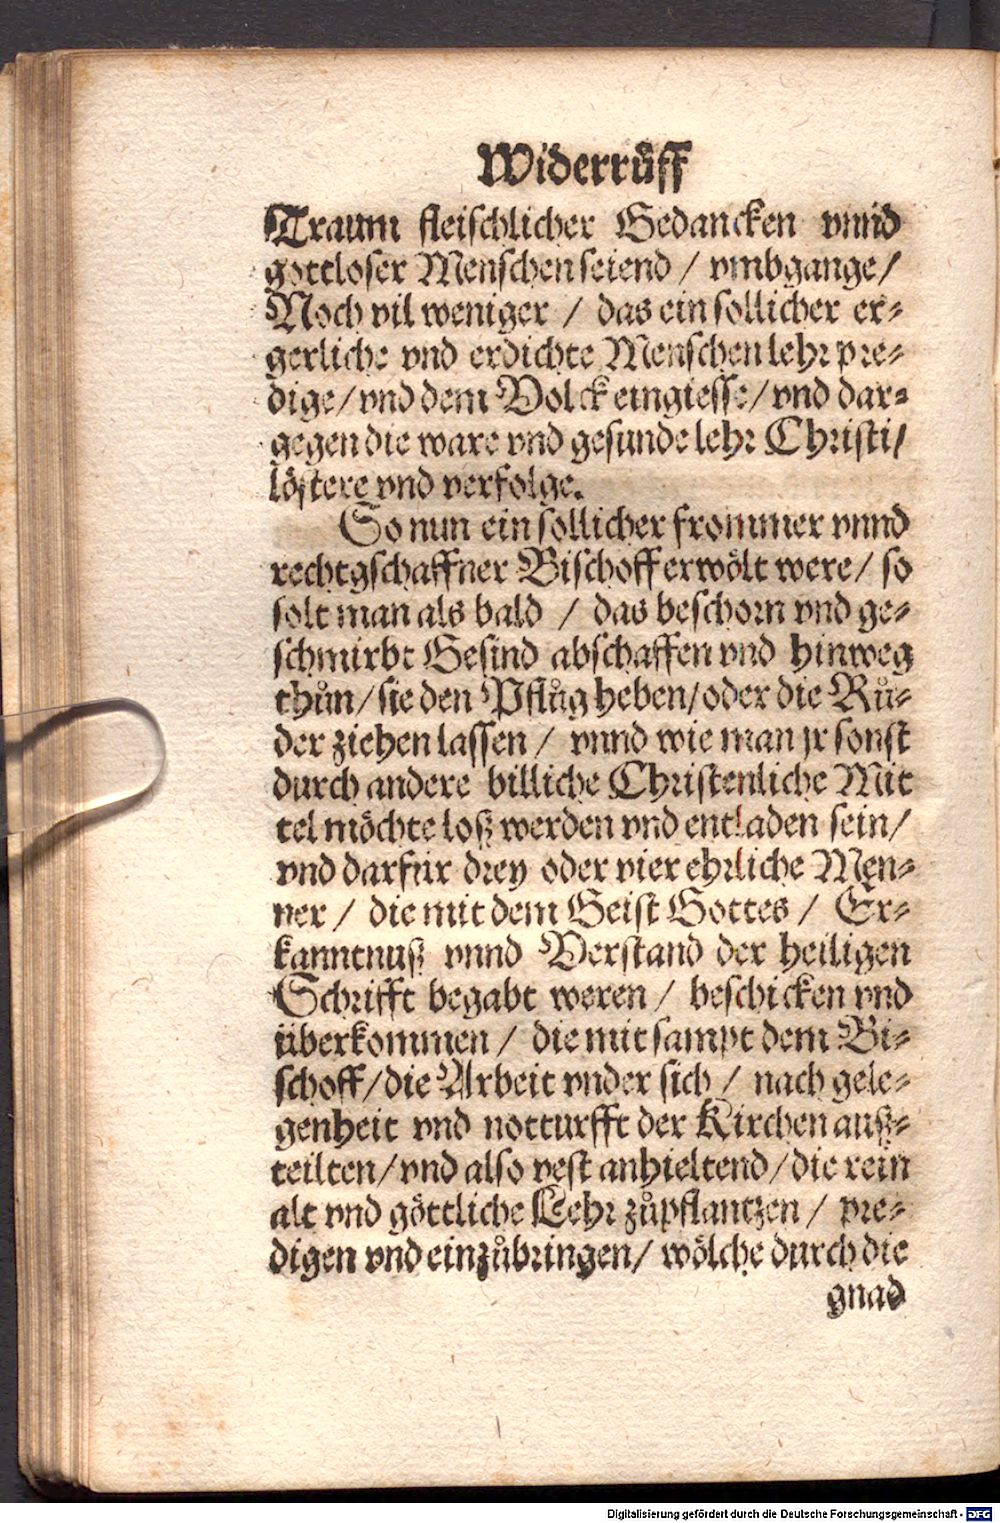 Widerrůff
Traum fleischlicher Gedancken vnnd
gottloser Menschen seiend / vmbgange /
Noch vil weniger / das ein sollicher er-
gerliche vnd erdichte Menschen lehr pre-
dige / vnd dem Volck eingiesse / vnd dar-
gegen die ware vnd gesunde lehr Christi /
löstere vnd verfolge.
So nun ein sollicher frommer vnnd
rechtgschaffner Bischoff erwölt were / so
solt man als bald / das beschorn vnd ge-
schmirbt Gesind abschaffen vnd hinweg
thůn / sie den Pflůg heben / oder die Rů-
der ziehen lassen / vnnd wie man jr sonst
durch andere billiche Christenliche Mit
tel möchte loß werden vnd entladen sein /
vnd darfür drey oder vier ehrliche Men-
ner / die mit dem Geist Gottes / Er-
kanntnuß vnnd Verstand der heiligen
Schrifft begabt weren / beschicken vnd
überkommen / die mit sampt dem Bi-
schoff / die Arbeit vnder sich / nach gele-
genheit vnd notturfft der Kirchen auß-
teilten / vnd also vest anhieltend / die rein
alt vnd göttliche Lehr zůpflantzen / pre-
digen vnd einzůbringen / wölche durch die
gnad
Digitalisierung gefördert durch die Deutsche Forschungsgemeinschaft - DFG